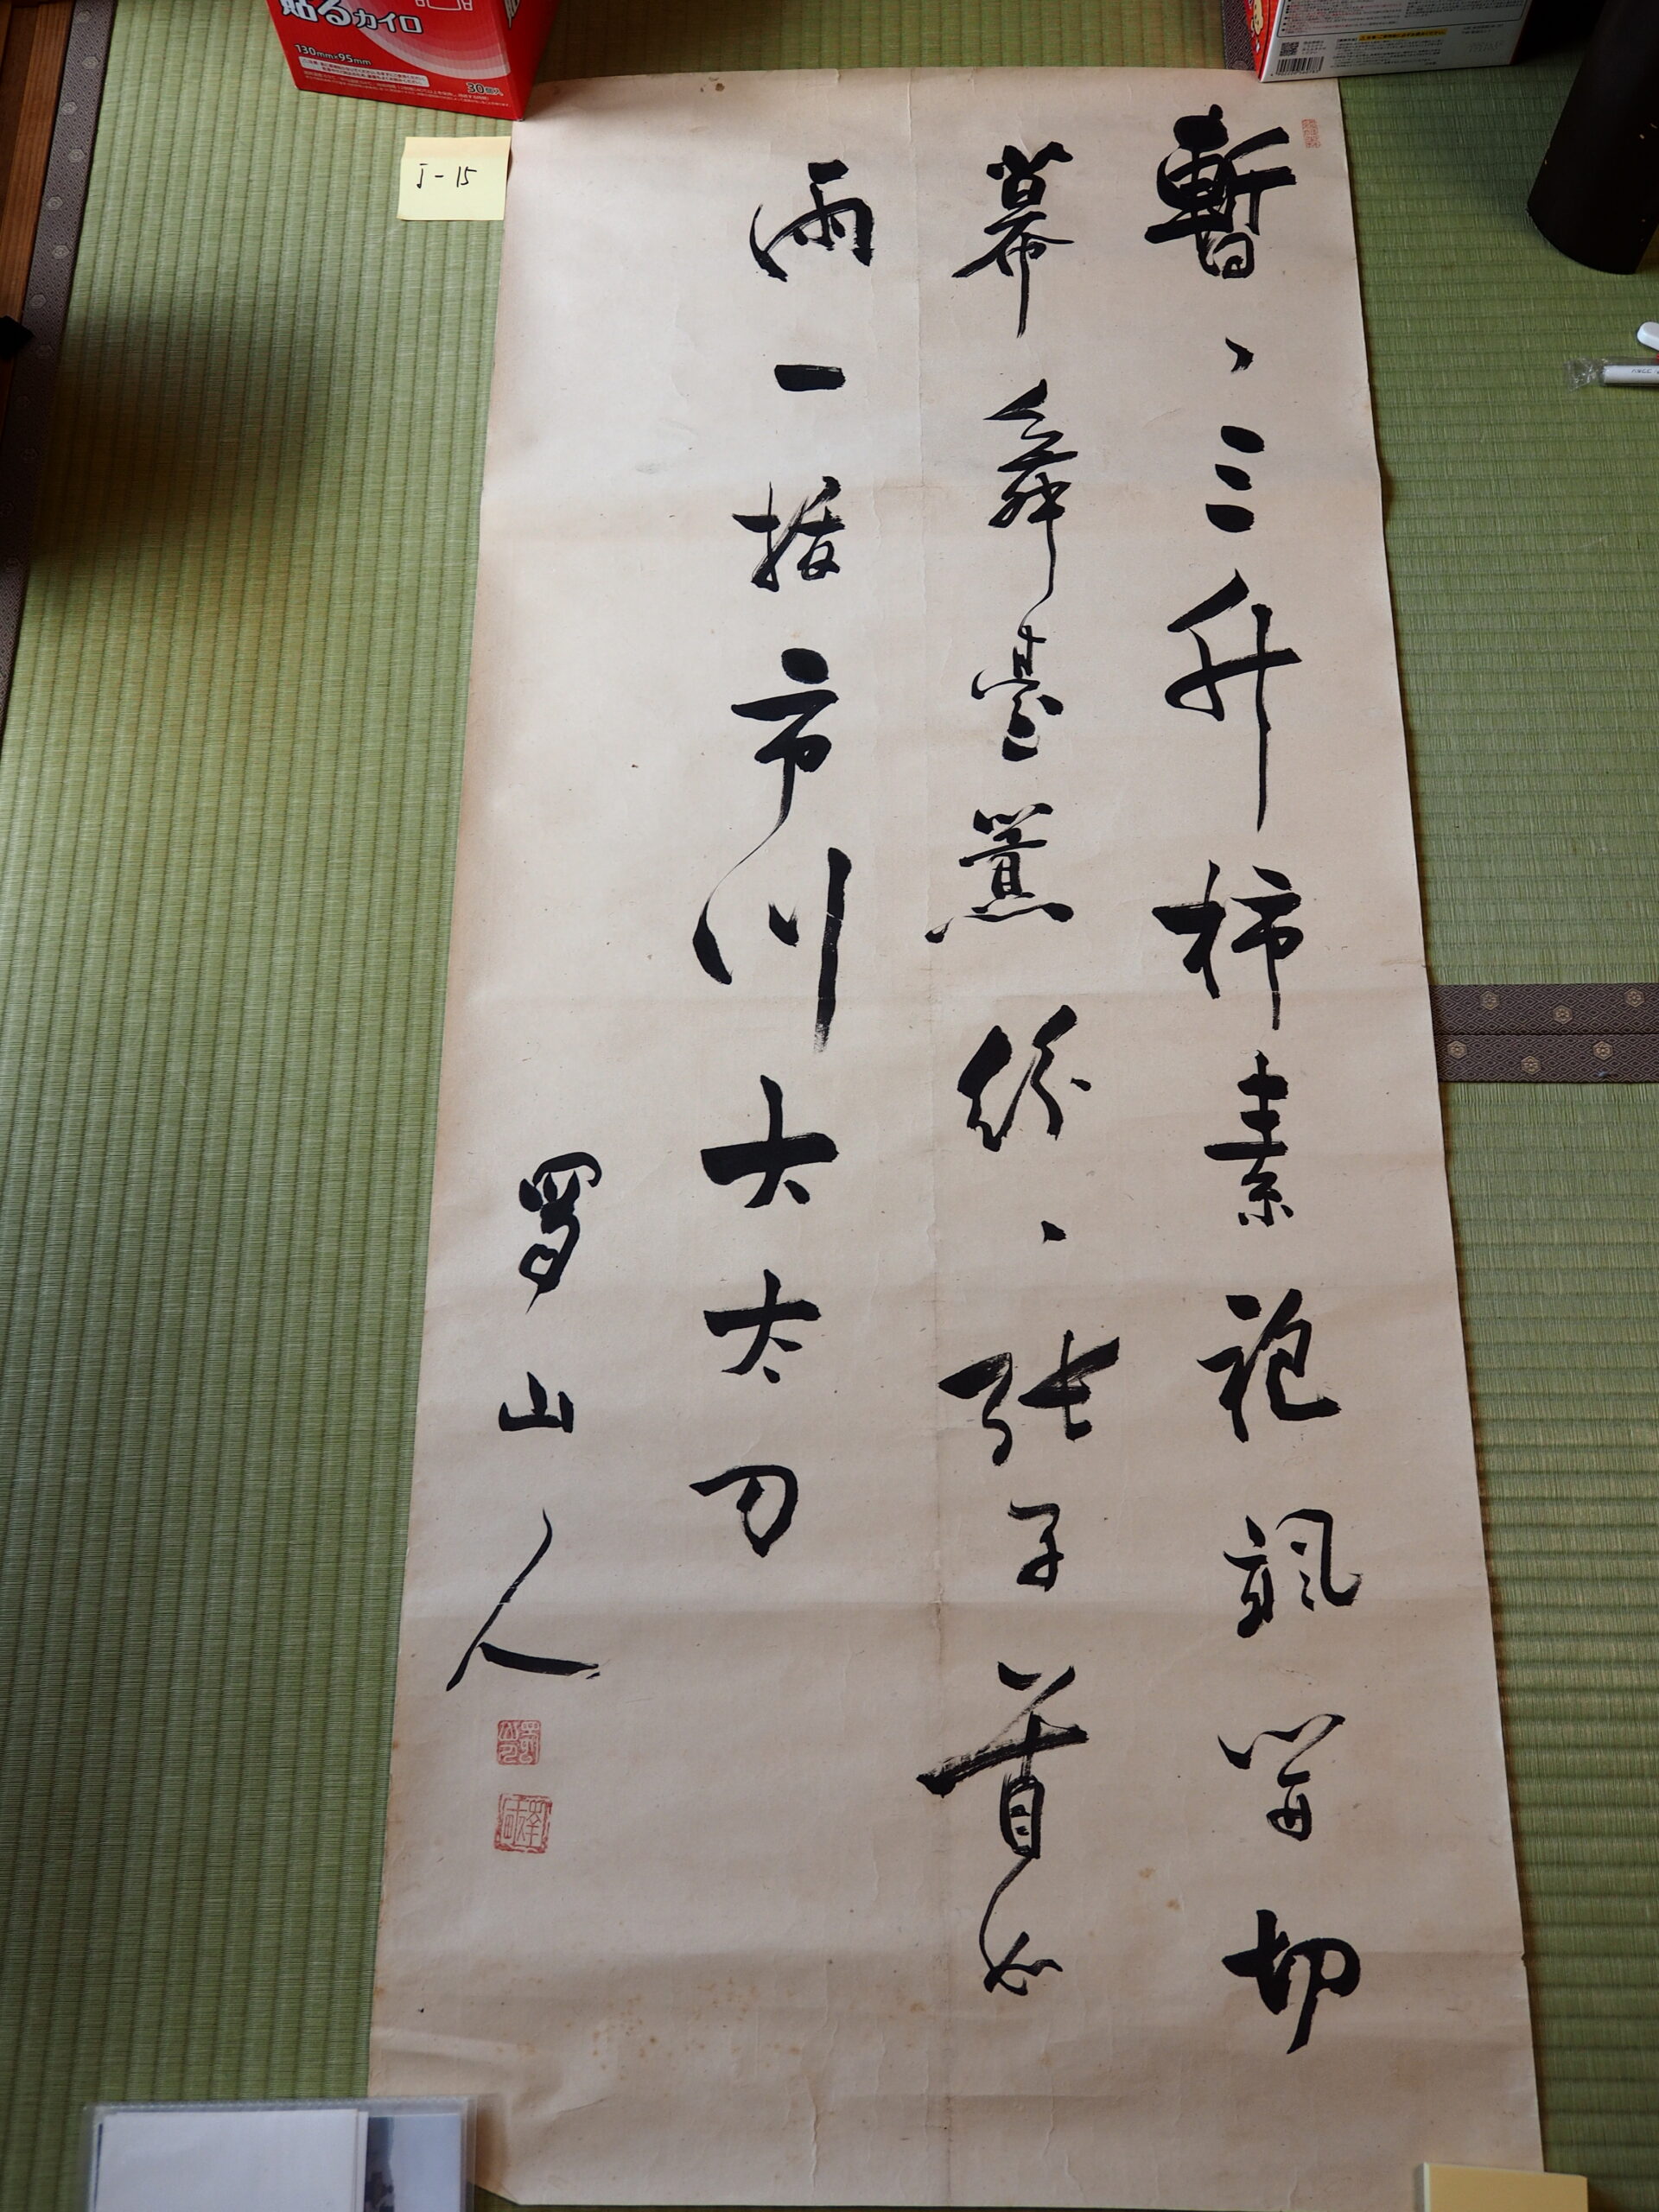 貼るカイロ
130mm×95mm
30個入
J-15
暫、三升柿素袍颯切
幕舞臺薫紛、張子首如
雨一抜市川大太刀
山人